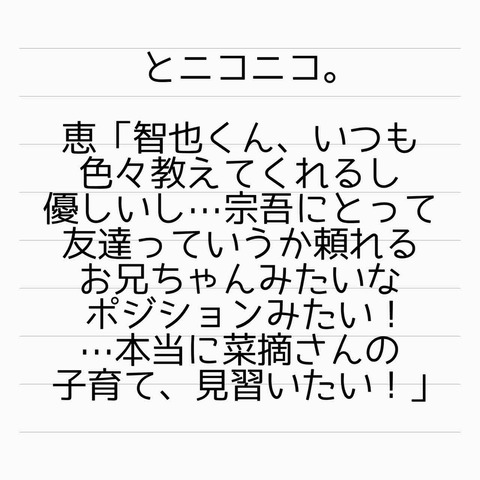 とニコニコ。
恵「智也くん、いつも
色々教えてくれるし
優しいし…宗吾にとって
友達っていうか頼れる
お兄ちゃんみたいな
ポジションみたい！
…本当に菜摘さんの
子育て、見習いたい！」